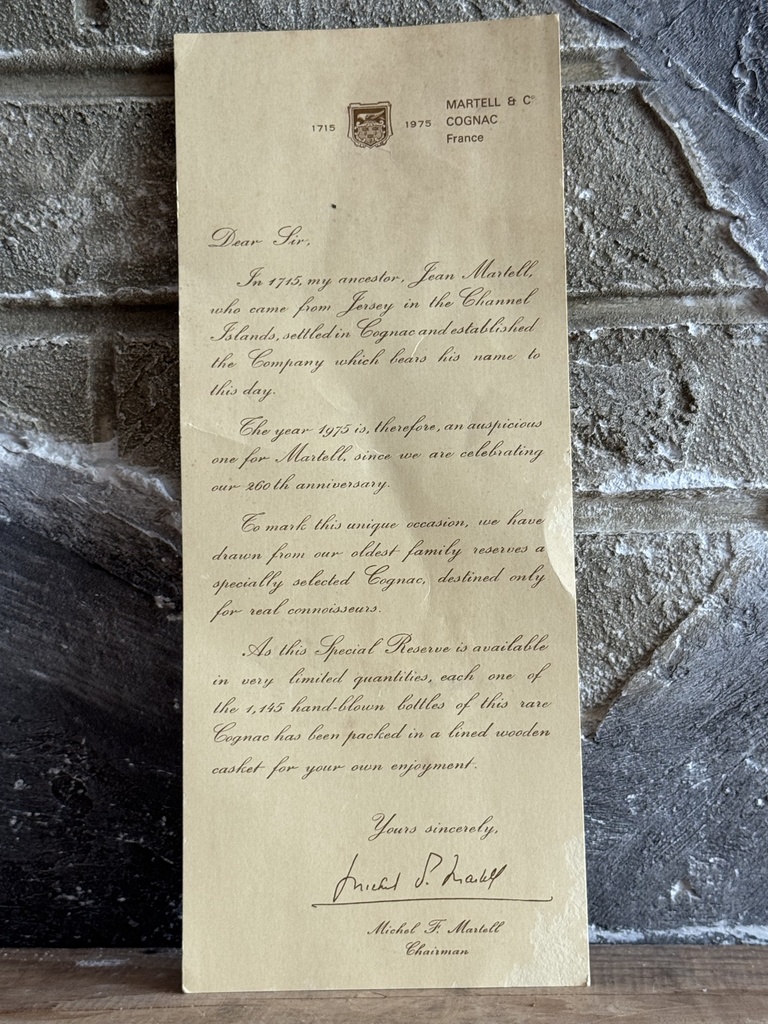 1715 1975
MARTELL & C°
COGNAC
France
Dear Sir,
In 1715, my ancestor, Jean Martell,
who came from Jersey in the Channel
Islands, settled in Cognac and established
the Company which bears his name to
this day.
The year 1975 is, therefore, an auspicious
one for Martell, since we are celebrating
our 260th anniversary.
To mark this unique occasion, we have
drawn from our oldest family reserves a
specially selected Cognac, destined only
for real connoisseurs.
As this Special Reserve is available
in very limited quantities, each one of
the 1,145 hand-blown bottles of this rare
Cognac has been packed in a lined wooden
casket for your own enjoyment.
Yours sincerely,
Michel F. Martell
Michel F. Martell
Chairman